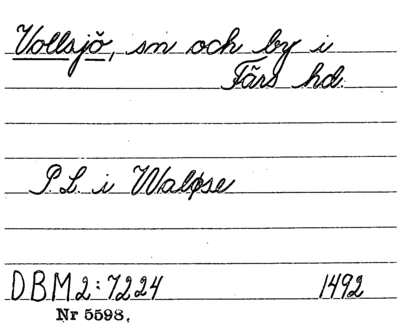 Vollsjö, sn och by i
Färs hd.
P. L. i Waløse
DBM 2:7224 1492
Nr 5598.